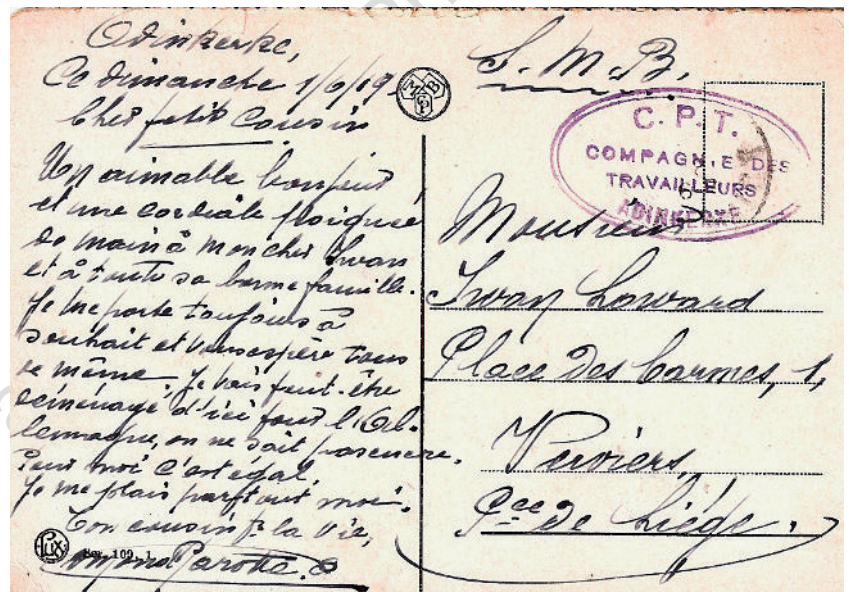 Adinkerke,
Ce dimanche 1/6/19
Cher petit Cousin
Un aimable bonjour
et une cordiale poignée
de main à mon cher Iwan
et à toute sa bonne famille.
Je me porte toujours à
souhait et vous espère tous
de même. Je vais peut-être
déménagé d'ici pour l'Al-
lemagne, on ne sait pas encore.
Pour moi c'est egal,
Je me plais partout moi.
Ton cousin p. la vie,
Parotte.
Lux
109
M B
S. M. B.
C. P. T.
COMPAGNIE DES
TRAVAILLEURS
ADINKERKE
Monsieur
Iwan Loward
Place des Carmes, 1,
Verviers,
Pce de Liége.